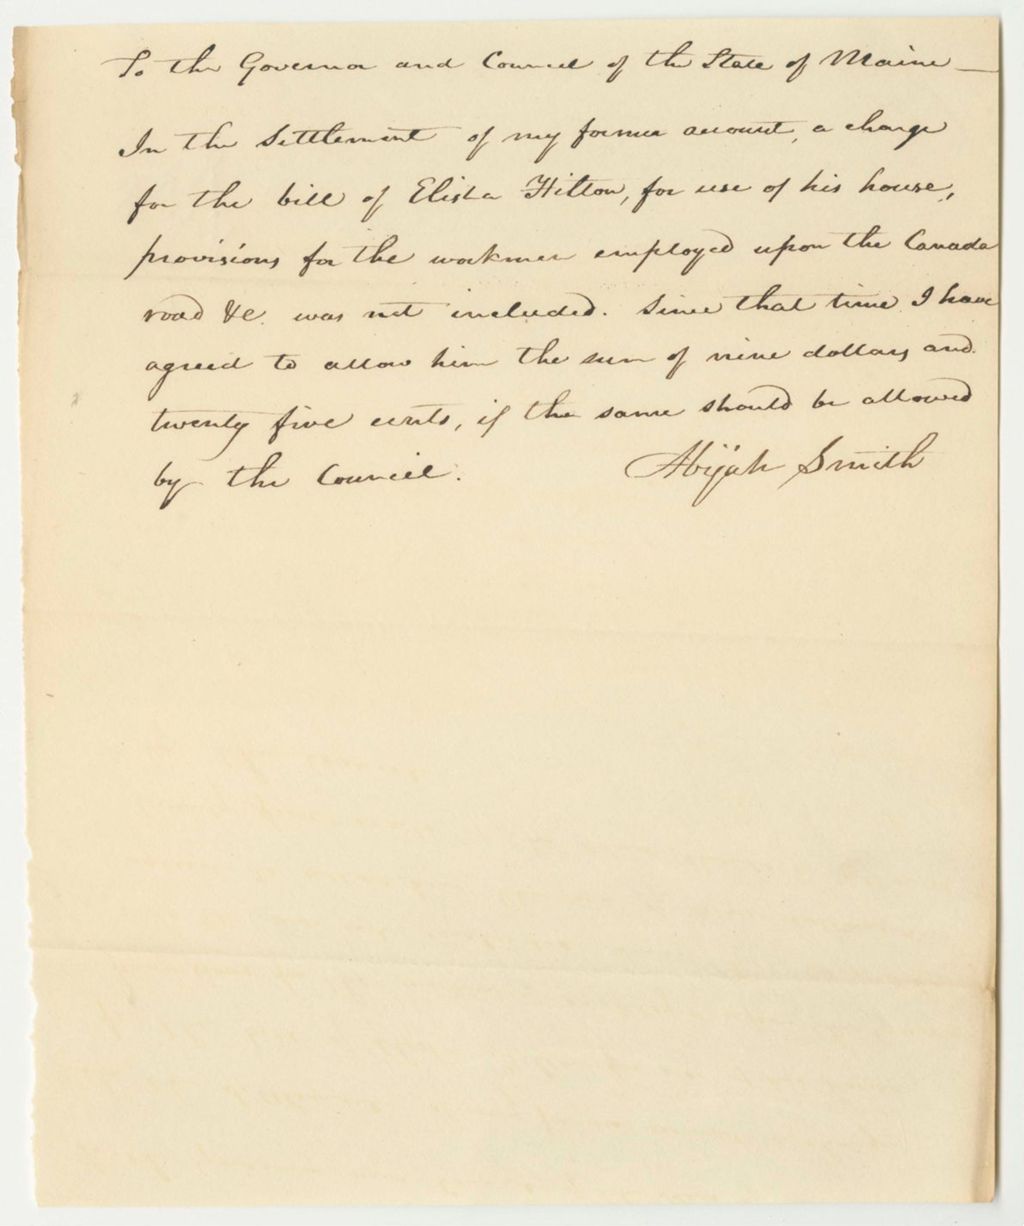 To the Governor and Council of the State of Maine —
In the Settlement of my former account, a charge
for the bill of Elisha Hilton, for use of his house,
provisions for the workmen employed upon the Canada
road &c. was not included. Since that time I have
agreed to allow him the sum of nine dollars and
twenty five cents, if the same should be allowed
by the Council.
Abijah Smith